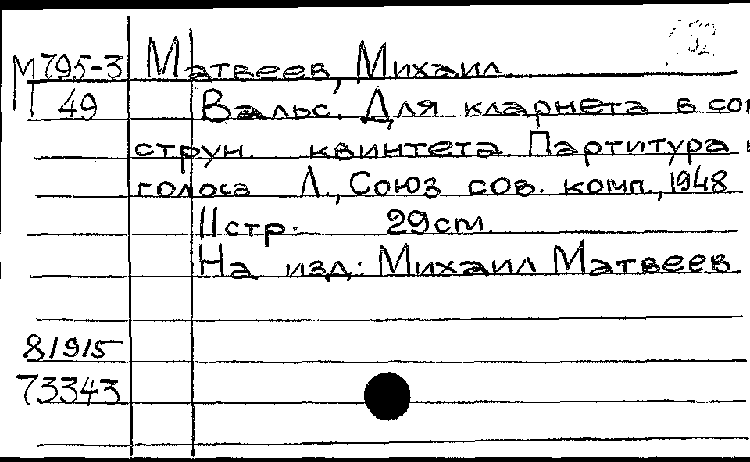 М795-3 Матвеев, Михаил
П 49 Вальс. Для кларнета в соп
струн. квинтета Партитура и
голоса Л., Союз сов. комп., 1948
11стр. 29cm.
На изд: Михаил Матвеев
81915
73343